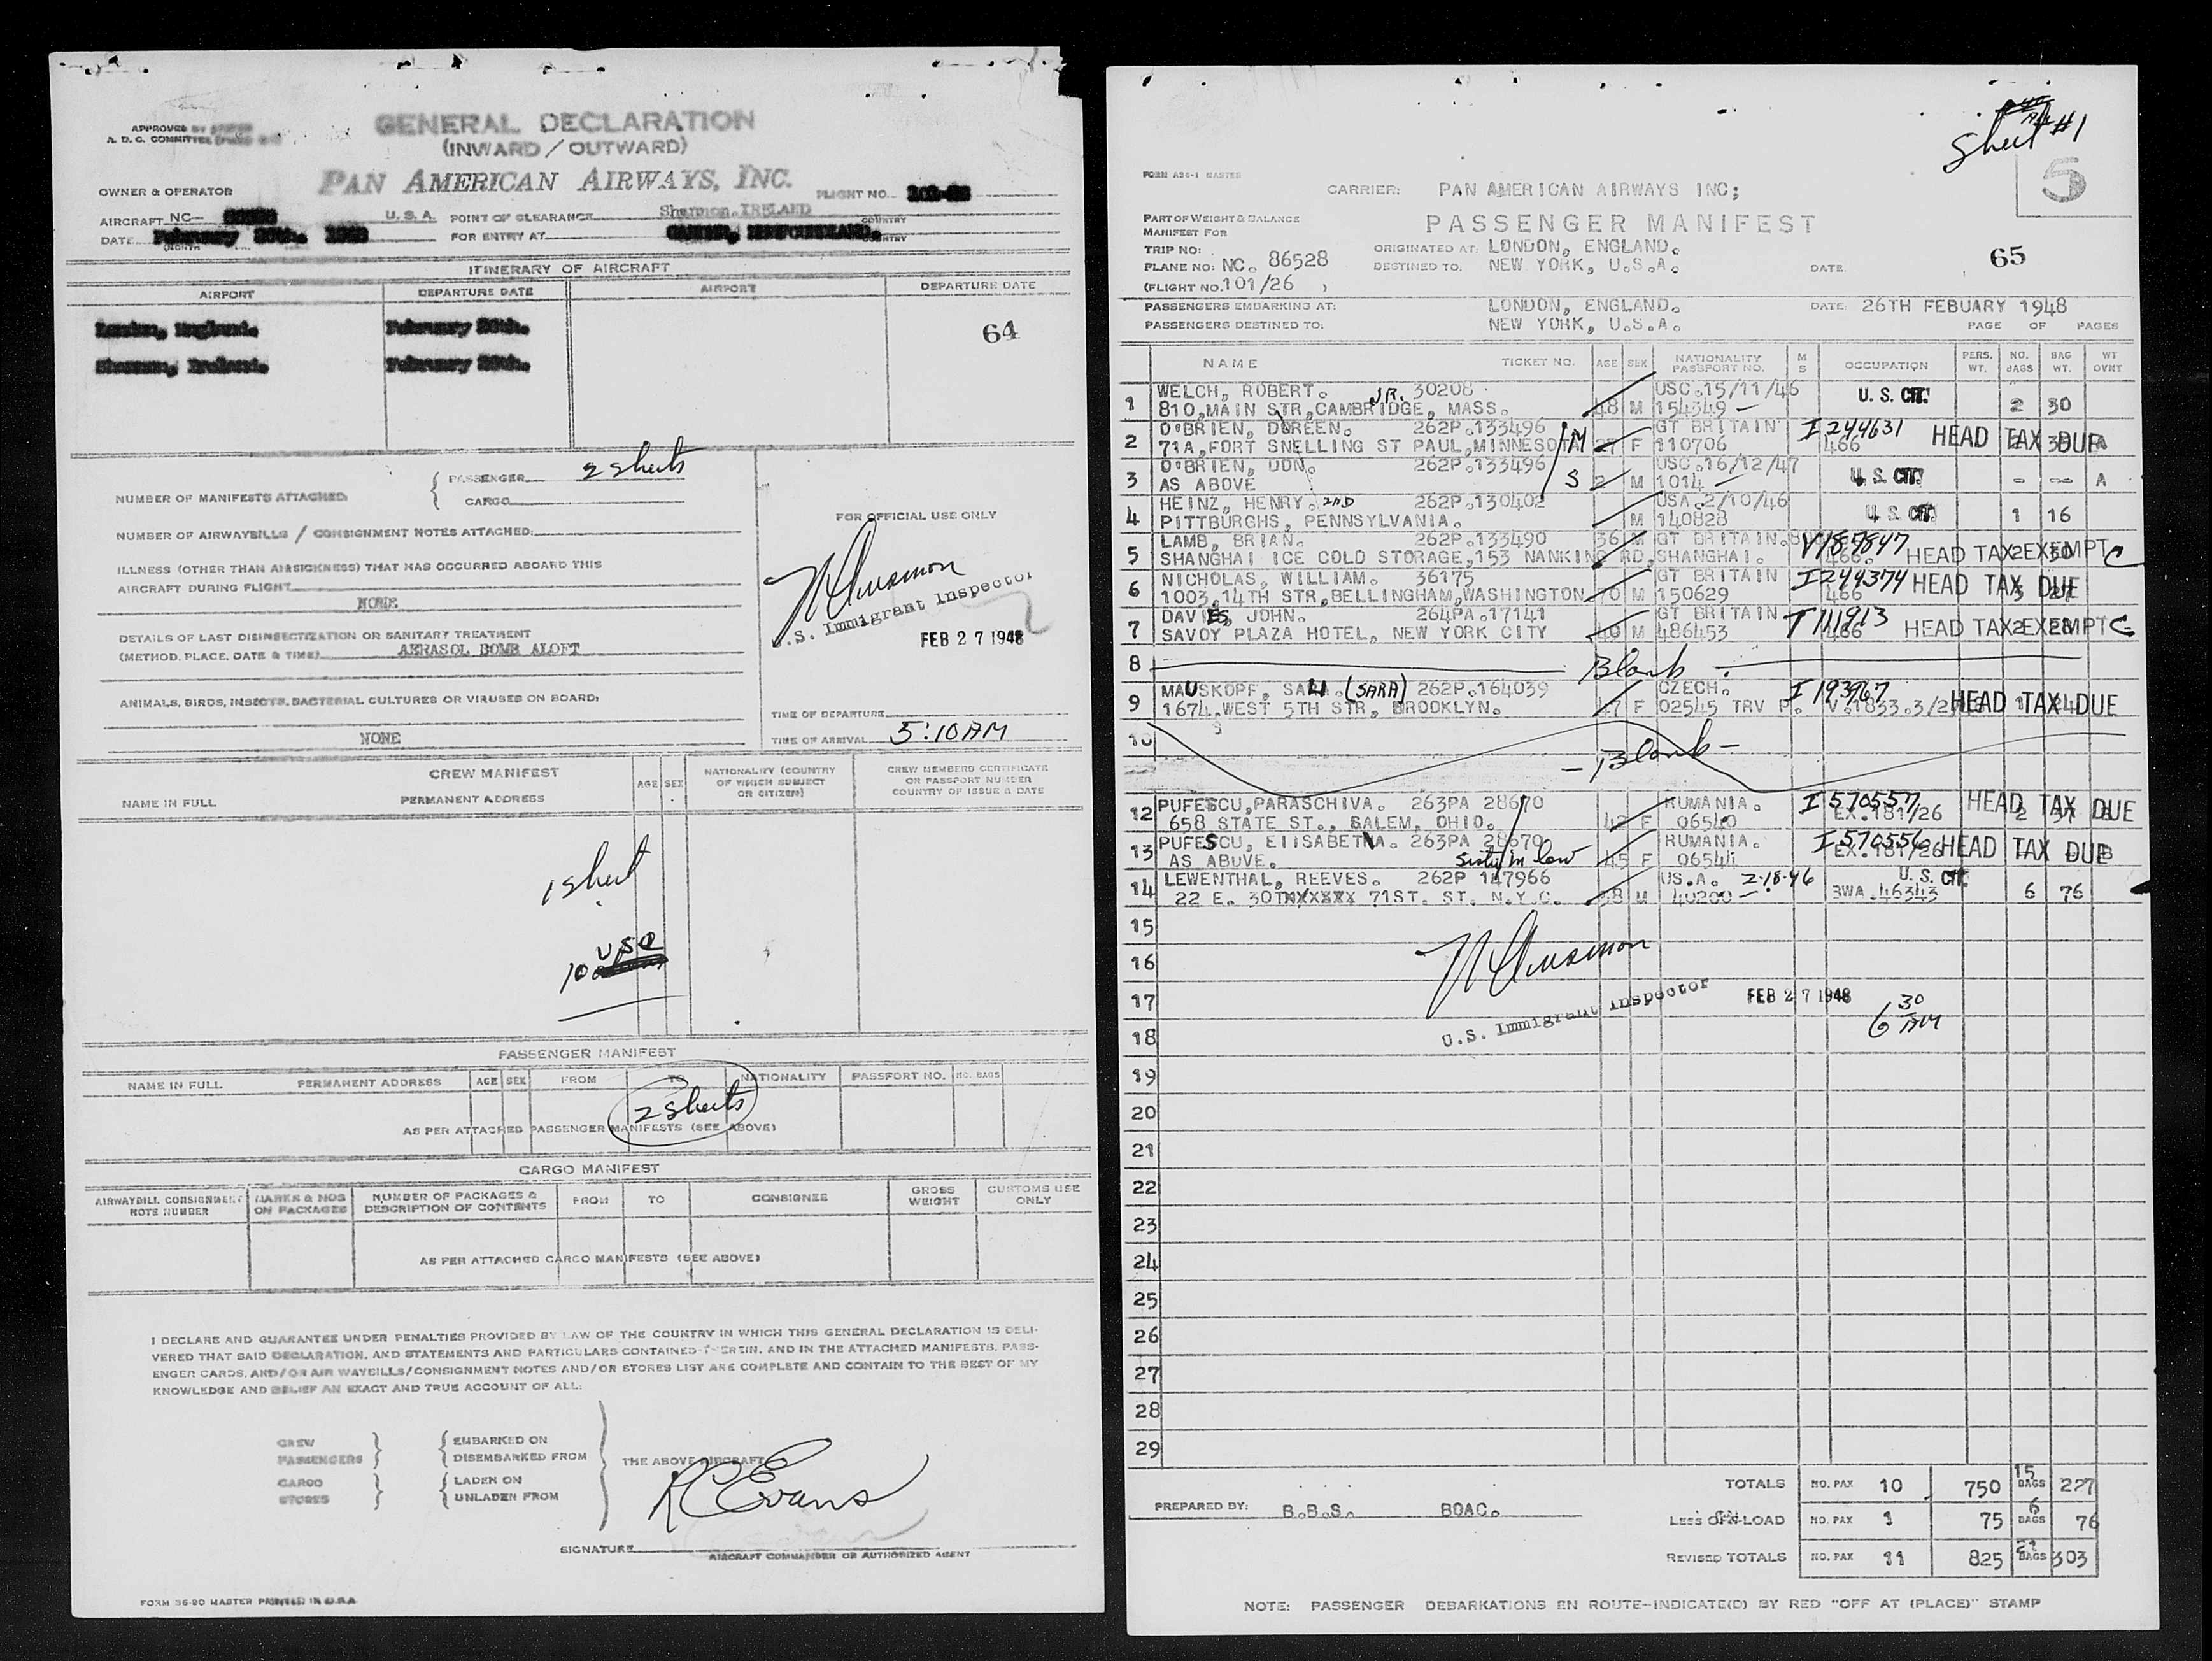 APPROVED BY
A. D. C. COMMITTEE
GENERAL DECLARATION
(INWARD / OUTWARD)
PAN AMERICAN AIRWAYS, INC.
OWNER & OPERATOR
FLIGHT NO.
AIRCRAFT NC-
U.S.A. POINT OF CLEARANCE Shannon, IRELAND COUNTRY
DATE February 26th. 1948 FOR ENTRY AT GANDER, NEWFOUNDLAND. COUNTRY
(MONTH
ITINERARY OF AIRCRAFT
AIRPORT DEPARTURE DATE AIRPORT DEPARTURE DATE
London, England. February 26th.
64
Shannon, Ireland. February 26th.
NUMBER OF MANIFESTS ATTACHED: PASSENGER 2 sheets
CARGO
NUMBER OF AIRWAYBILLS / CONSIGNMENT NOTES ATTACHED:
FOR OFFICIAL USE ONLY
ILLNESS (OTHER THAN AIRSICKNESS) THAT HAS OCCURRED ABOARD THIS
AIRCRAFT DURING FLIGHT
NONE
U.S. Immigrant Inspector
FEB 27 1948
DETAILS OF LAST DISINSECTIZATION OR SANITARY TREATMENT
(METHOD, PLACE, DATE & TIME) AERASOL BOMB ALOFT
ANIMALS, BIRDS, INSECTS, BACTERIAL CULTURES OR VIRUSES ON BOARD:
NONE
TIME OF DEPARTURE
TIME OF ARRIVAL 5:10 AM
CREW MANIFEST
NAME IN FULL PERMANENT ADDRESS AGE SEX NATIONALITY (COUNTRY OF WHICH SUBJECT OR CITIZEN) CREW MEMBERS CERTIFICATE OR PASSPORT NUMBER COUNTRY OF ISSUE & DATE
1 sheet
USC
10
PASSENGER MANIFEST
NAME IN FULL PERMANENT ADDRESS AGE SEX FROM TO NATIONALITY PASSPORT NO. NO. BAGS
2 sheets
AS PER ATTACHED PASSENGER MANIFESTS (SEE ABOVE)
CARGO MANIFEST
AIRWAYBILL CONSIGNMENT NOTE NUMBER MARKS & NOS ON PACKAGES NUMBER OF PACKAGES & DESCRIPTION OF CONTENTS FROM TO CONSIGNEE GROSS WEIGHT CUSTOMS USE ONLY
AS PER ATTACHED CARGO MANIFESTS (SEE ABOVE)
I DECLARE AND GUARANTEE UNDER PENALTIES PROVIDED BY LAW OF THE COUNTRY IN WHICH THIS GENERAL DECLARATION IS DELI-
VERED THAT SAID DECLARATION, AND STATEMENTS AND PARTICULARS CONTAINED THEREIN, AND IN THE ATTACHED MANIFESTS, PASS-
ENGER CARDS, AND/OR AIR WAYBILLS/CONSIGNMENT NOTES AND/OR STORES LIST ARE COMPLETE AND CONTAIN TO THE BEST OF MY
KNOWLEDGE AND BELIEF AN EXACT AND TRUE ACCOUNT OF ALL:
CREW EMBARKED ON
PASSENGERS DISEMBARKED FROM THE ABOVE AIRCRAFT
CARGO LADEN ON
STORES UNLADEN FROM
R C Evans
SIGNATURE
AIRCRAFT COMMANDER OR AUTHORIZED AGENT
FORM 36-90 MASTER PRINTED IN U.S.A.
Sheet #1
5
FORM A30-1 MASTER
CARRIER: PAN AMERICAN AIRWAYS INC;
PART OF WEIGHT & BALANCE
MANIFEST FOR
PASSENGER MANIFEST
TRIP NO: ORIGINATED AT: LONDON, ENGLAND.
PLANE NO: NC. 86528 DESTINED TO: NEW YORK, U.S.A. DATE 65
(FLIGHT NO. 101/26 )
PASSENGERS EMBARKING AT: LONDON, ENGLAND. DATE: 26TH FEBUARY 1948
PASSENGERS DESTINED TO: NEW YORK, U.S.A. PAGE OF PAGES
NAME TICKET NO. AGE SEX NATIONALITY PASSPORT NO. M S OCCUPATION PERS. WT. NO. BAGS BAG WT. WT OVNT
1 WELCH, ROBERT. JR. 30208 USC.15/11/46 U.S. CIT.
810,MAIN STR,CAMBRIDGE, MASS. 48 M 154349 - 2 30
2 O'BRIEN, DOREEN. 262P.133496 GT BRITAIN I 244631 HEAD TAX DUE
71A,FORT SNELLING ST PAUL,MINNESOTA M 27 F 110706 466
3 O'BRIEN, DON. 262P.133496 USC.16/12/47 U.S. CIT.
AS ABOVE S 2 M 1014 - - - A
4 HEINZ, HENRY. 2ND 262P.130402 USA.2/10/46 U.S. CIT.
PITTBURGHS, PENNSYLVANIA. M 140828 1 16
5 LAMB, BRIAN. 262P.133490 36 M GT BRITAIN. V187847 HEAD TAX EXEMPT C
SHANGHAI ICE COLD STORAGE,153 NANKING RD,SHANGHAI. 466.
6 NICHOLAS, WILLIAM. 36175 GT BRITAIN I244374 HEAD TAX DUE
1003,14TH STR,BELLINGHAM,WASHINGTON 70 M 150629 466
7 DAVIES, JOHN. 264PA.17141 GT BRITAIN T111913 HEAD TAX EXEMPT C
SAVOY PLAZA HOTEL, NEW YORK CITY 40 M 486453 466
8 Blank.
9 MAUSKOPF, SALI. (SARA) 262P.164039 CZECH. I 193967 HEAD TAX DUE
1674,WEST 5TH STR, BROOKLYN. 47 F 02545 TRV P. V.1833.3/2
10 - Blank -
12 PUFESCU,PARASCHIVA. 263PA 28670 RUMANIA. I 570557 HEAD TAX DUE
658 STATE ST., SALEM, OHIO. 42 F 06540 EX.181/26
13 PUFESCU, ELISABETA. 263PA 28670 RUMANIA. I 570556 HEAD TAX DUE
AS ABOVE. Sister in law 45 F 06541 EX.181/26
14 LEWENTHAL, REEVES. 262P 147966 US.A. 2-18-46 U.S. CIT.
22 E. 71ST. ST. N.Y.C. 38 M 40200 - BWA.46343 6 76
15
16
17 U.S. Immigrant Inspector FEB 27 1948
6 30 AM
18
19
20
21
22
23
24
25
26
27
28
29
TOTALS NO. PAX 10 750 15 BAGS 227
PREPARED BY: B.B.S. BOAC.
LESS OFF-LOAD NO. PAX 1 75 6 BAGS 76
REVISED TOTALS NO. PAX 11 825 21 BAGS 303
NOTE: PASSENGER DEBARKATIONS EN ROUTE-INDICATE(D) BY RED "OFF AT (PLACE)" STAMP